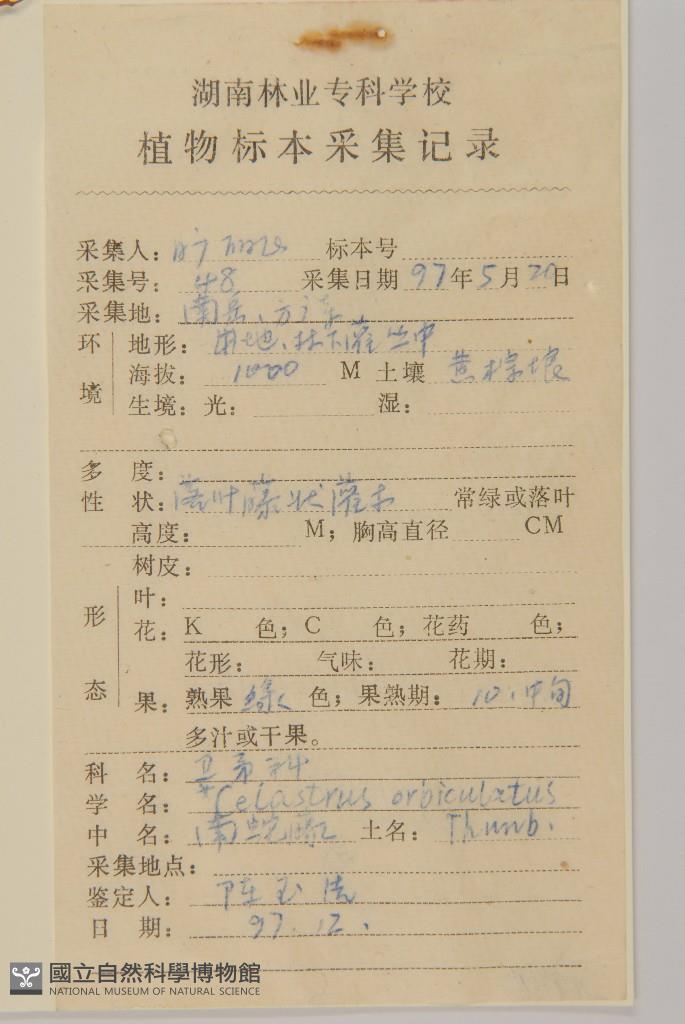 湖南林业专科学校
植物标本采集记录
采集人： 标本号
采集号： 48 采集日期 97年5月20日
采集地： 南岳、方广寺
环境 地形： 林下灌丛中
海拔： 1000 M 土壤 黄棕壤
生境：光： 湿：
多 度：
性 状： 落叶藤状灌木 常绿或落叶
高度： M；胸高直径 CM
树皮：
形态 叶：
花： K 色；C 色；花药 色；
花形： 气味： 花期：
果： 熟果 绿 色；果熟期： 10、中旬
多汁或干果。
科 名： 卫矛科
学 名： Celastrus orbiculatus
中 名： 南蛇藤 土名： Thunb.
采集地点：
鉴定人： 陈玉洁
日 期： 97.12.
國立自然科學博物館
NATIONAL MUSEUM OF NATURAL SCIENCE